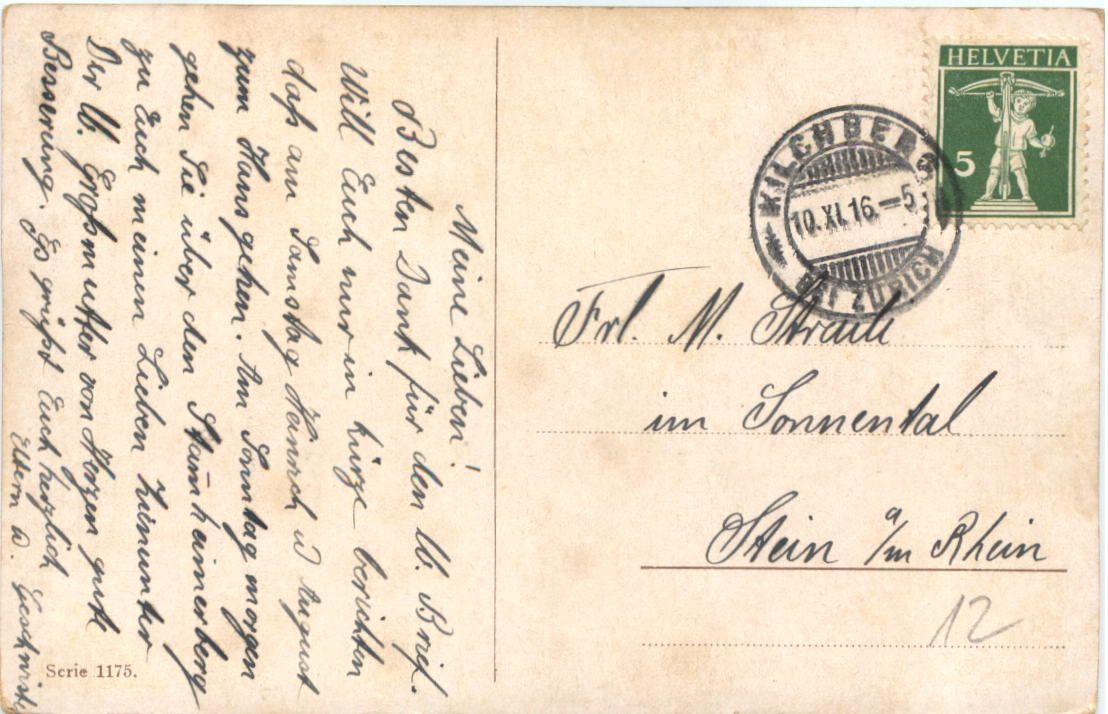 Meine Lieben!
Besten Dank für den lb. Brief.
Will Euch nur in kürze berichten
daß am Samstag Heinrich u August
zum Hans gehen. Am Sonntag morgen
gehen Sie über den Stammheimerberg
zu Euch meinen Lieben hinunter
Der lb. Großmutter von Herzen gute
Besserung. Es grüßt Euch herzlich
Eltern u. Geschwister
Serie 1175.
HELVETIA
5
KILCHBERG
10.XI.16.—5
BEI ZÜRICH
Frl. M.
im Sonnental
Stein a/m Rhein
12